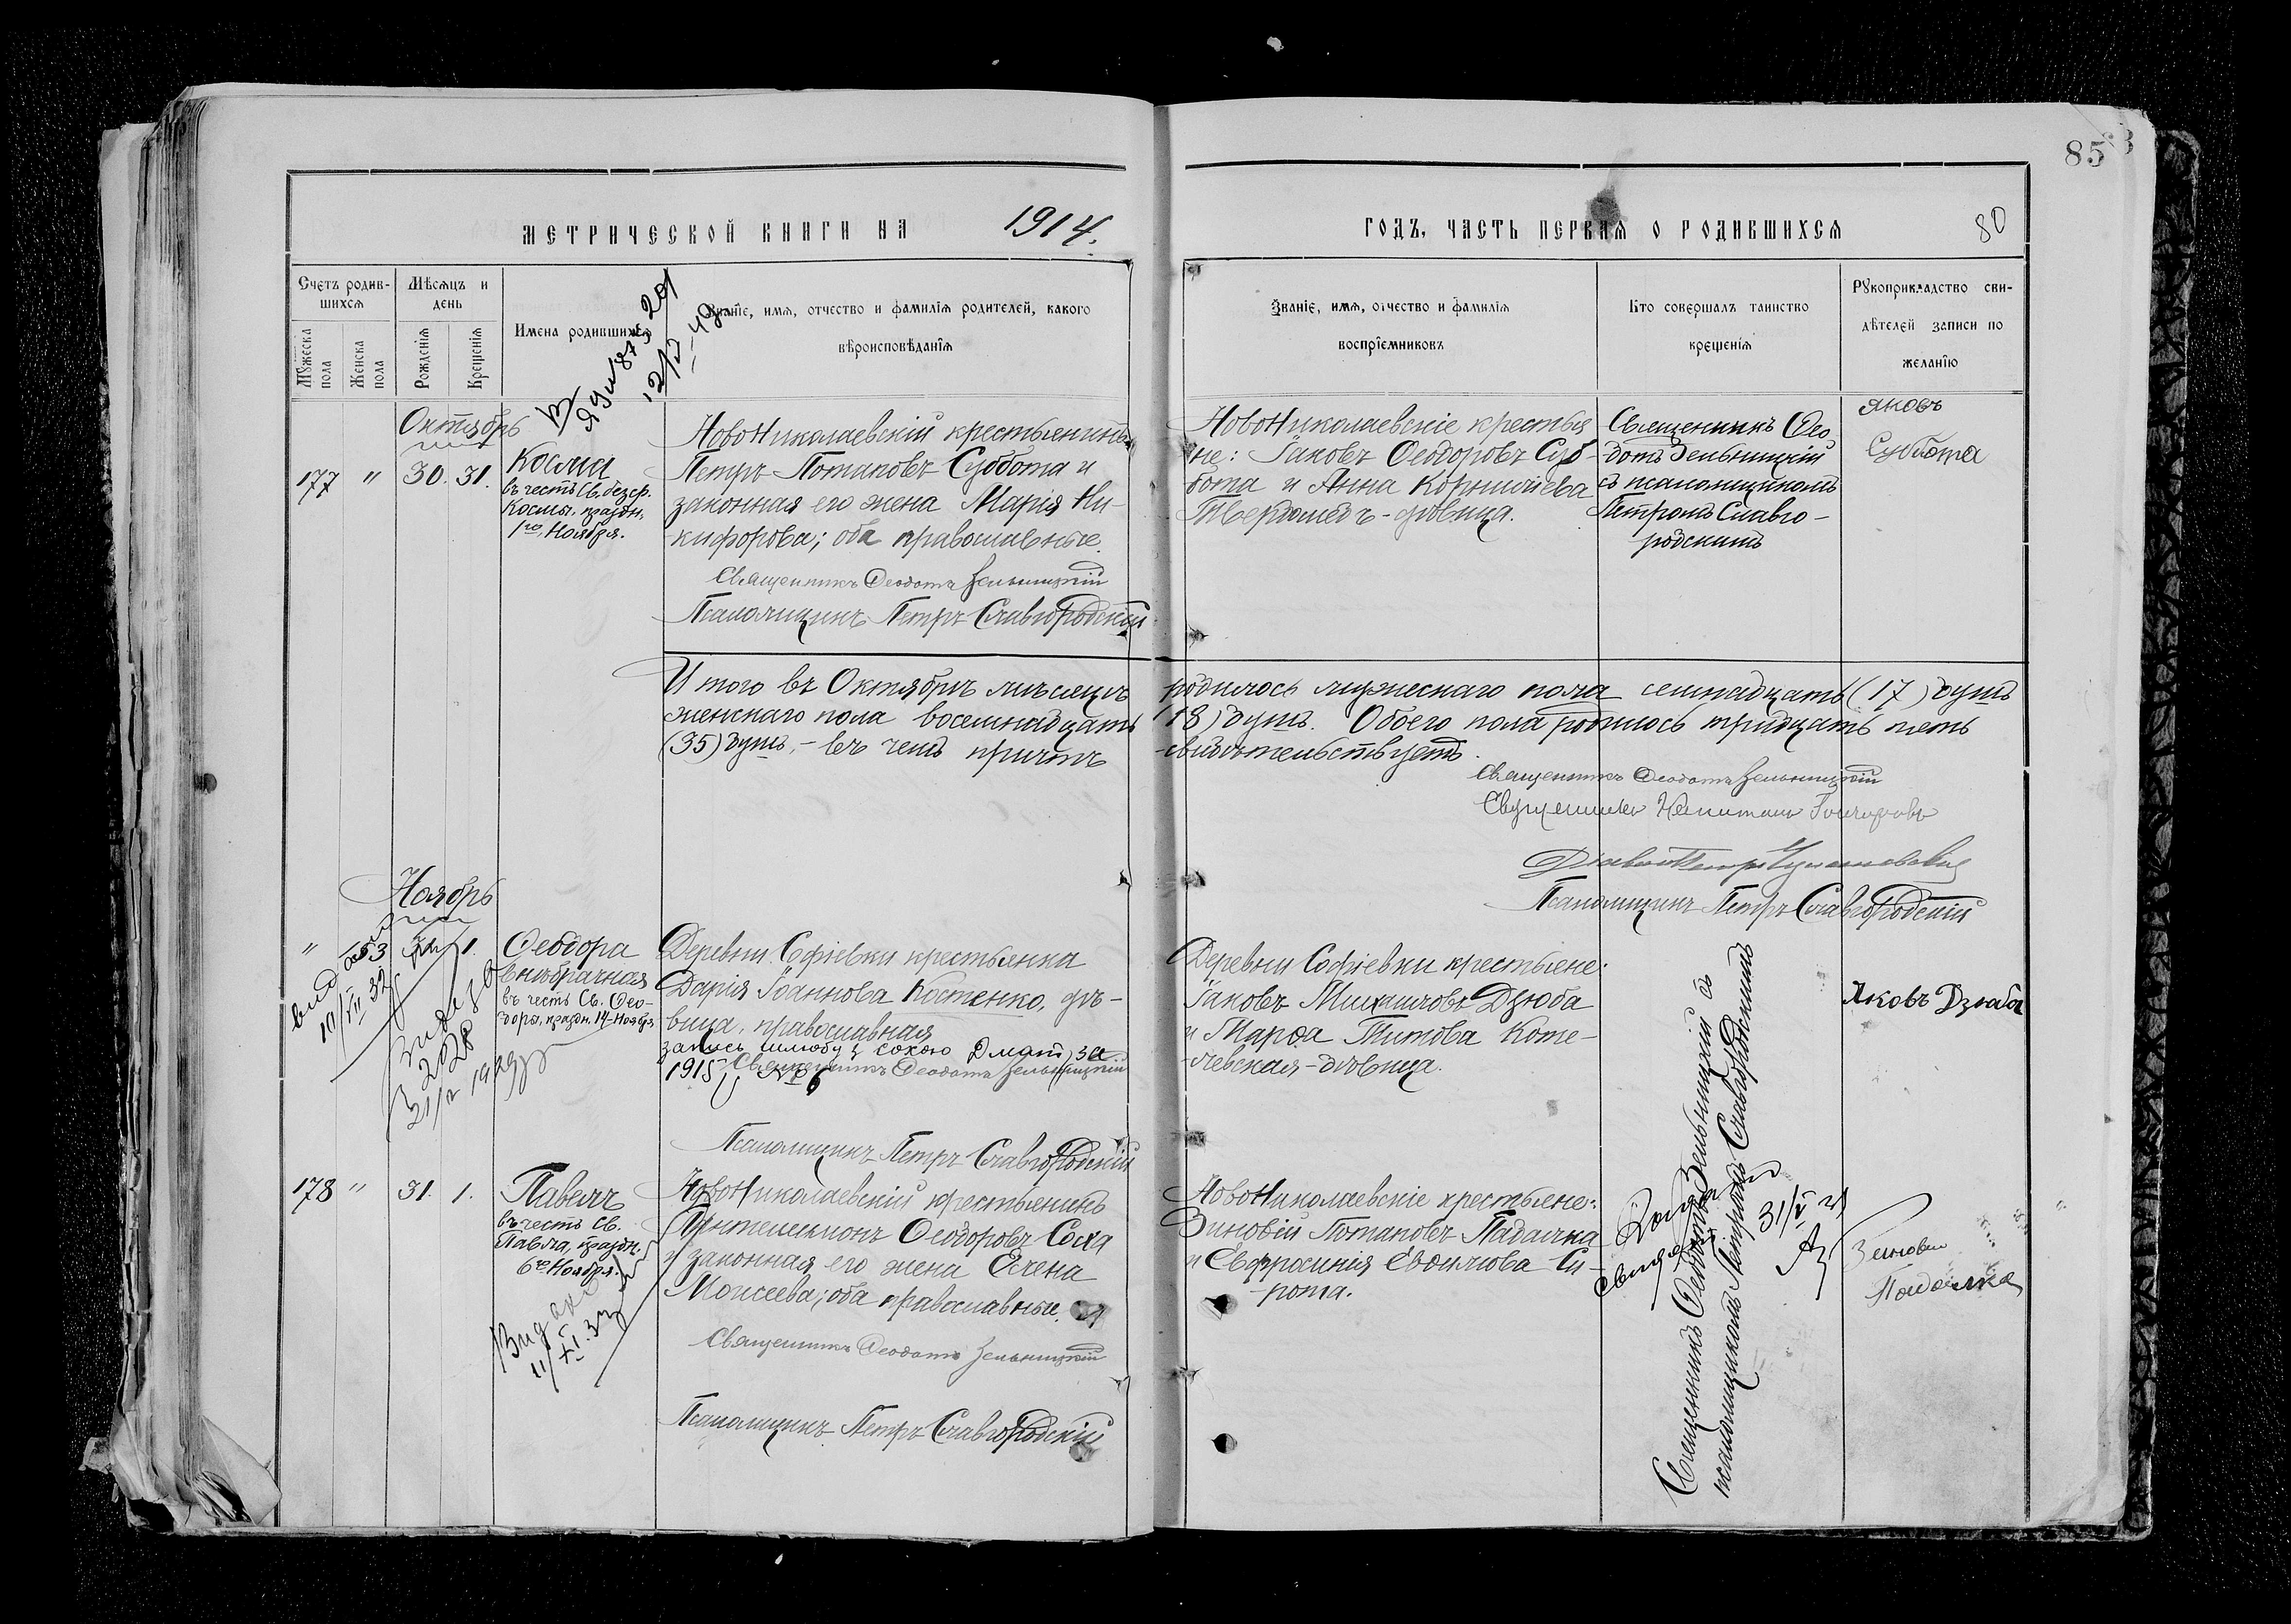 85
МЕТРИЧЕСКОЙ КНИГИ НА 1914. ГОДЪ, ЧАСТЬ ПЕРВАЯ О РОДИВШИХСЯ 80
Счетъ родив-
шихся
Мужеска пола
Женска пола
Мѣсяцъ и
день
Рожденія
Крещенія
Имена родившихся
Званіе, имя, отчество и фамилія родителей, какого
вѣроисповѣданія
Званіе, имя, отчество и фамилія
воспріемниковъ
Кто совершалъ таинство
крещенія
Рукоприкладство сви-
дѣтелей записи по
желанію
Октябрь
177 " 30. 31.
Косма
въ честь Св. безср.
Космы, праздн.
1го Ноября.
НовоНиколаевскій крестьянинъ
Петръ Потаповъ Суббота и
законная его жена Марія Ни-
кифорова; оба православные.
Священникъ Ѳеодотъ Зельницкій
Псаломщикъ Петръ Славгородскій
НовоНиколаевскіе крестья
не: Іаковъ Ѳеодоровъ Суб-
бота и Анна Корниліева
Твердохлѣбъ-дѣвица.
Священникъ Ѳео
дотъ Зельницкій
съ псаломщикомъ
Петромъ Славго-
родскимъ
Яковъ
Субота
Итого въ Октябрѣ мѣсяцѣ родилось мужескаго пола семнадцать (17) душъ
женскаго пола восемнадцать (18) душъ. Обоего пола родилось тридцать пять
(35) душъ,- въ чемъ причтъ свидѣтельствуетъ.
Священникъ Ѳеодотъ Зельницкій
Священникъ Гончаровъ
Діаконъ Петръ
Псаломщикъ Петръ Славгородскій
Ноябрь
" 153 1.
Ѳеодора
внѣбрачная
въ честь Св. Ѳео-
доры, праздн. 14 Ноября
Деревни Софіевки крестьянка
Дарія Іоаннова Костенко, дѣ-
вица, православная
запись шлюбу з сохою
1915 № 6
Священникъ Ѳеодотъ Зельницкій
Псаломщикъ Петръ Славгородскій
Деревни Софіевки крестьяне:
Іаковъ Михаиловъ Дзюба
и Марѳа Титова Коте-
левская-дѣвица.
Яковъ Дзюба
2028
178 " 31. 1.
Павелъ
въ честь Св.
Павла, праздн.
6го Ноября.
НовоНиколаевскій крестьянинъ
Пантелеимонъ Ѳеодоровъ Соха
и законная его жена Елена
Моисеева; оба православные.
Священникъ Ѳеодотъ Зельницкій
Псаломщикъ Петръ Славгородскій
НовоНиколаевскіе крестьяне:
Зиновій Потаповъ Падалка
и Евфросинія Евдокимова Си-
рота.
Священникъ Ѳеодотъ Зельницкій съ
псаломщикомъ Петромъ Славгородскимъ
Зиновий
Падалка